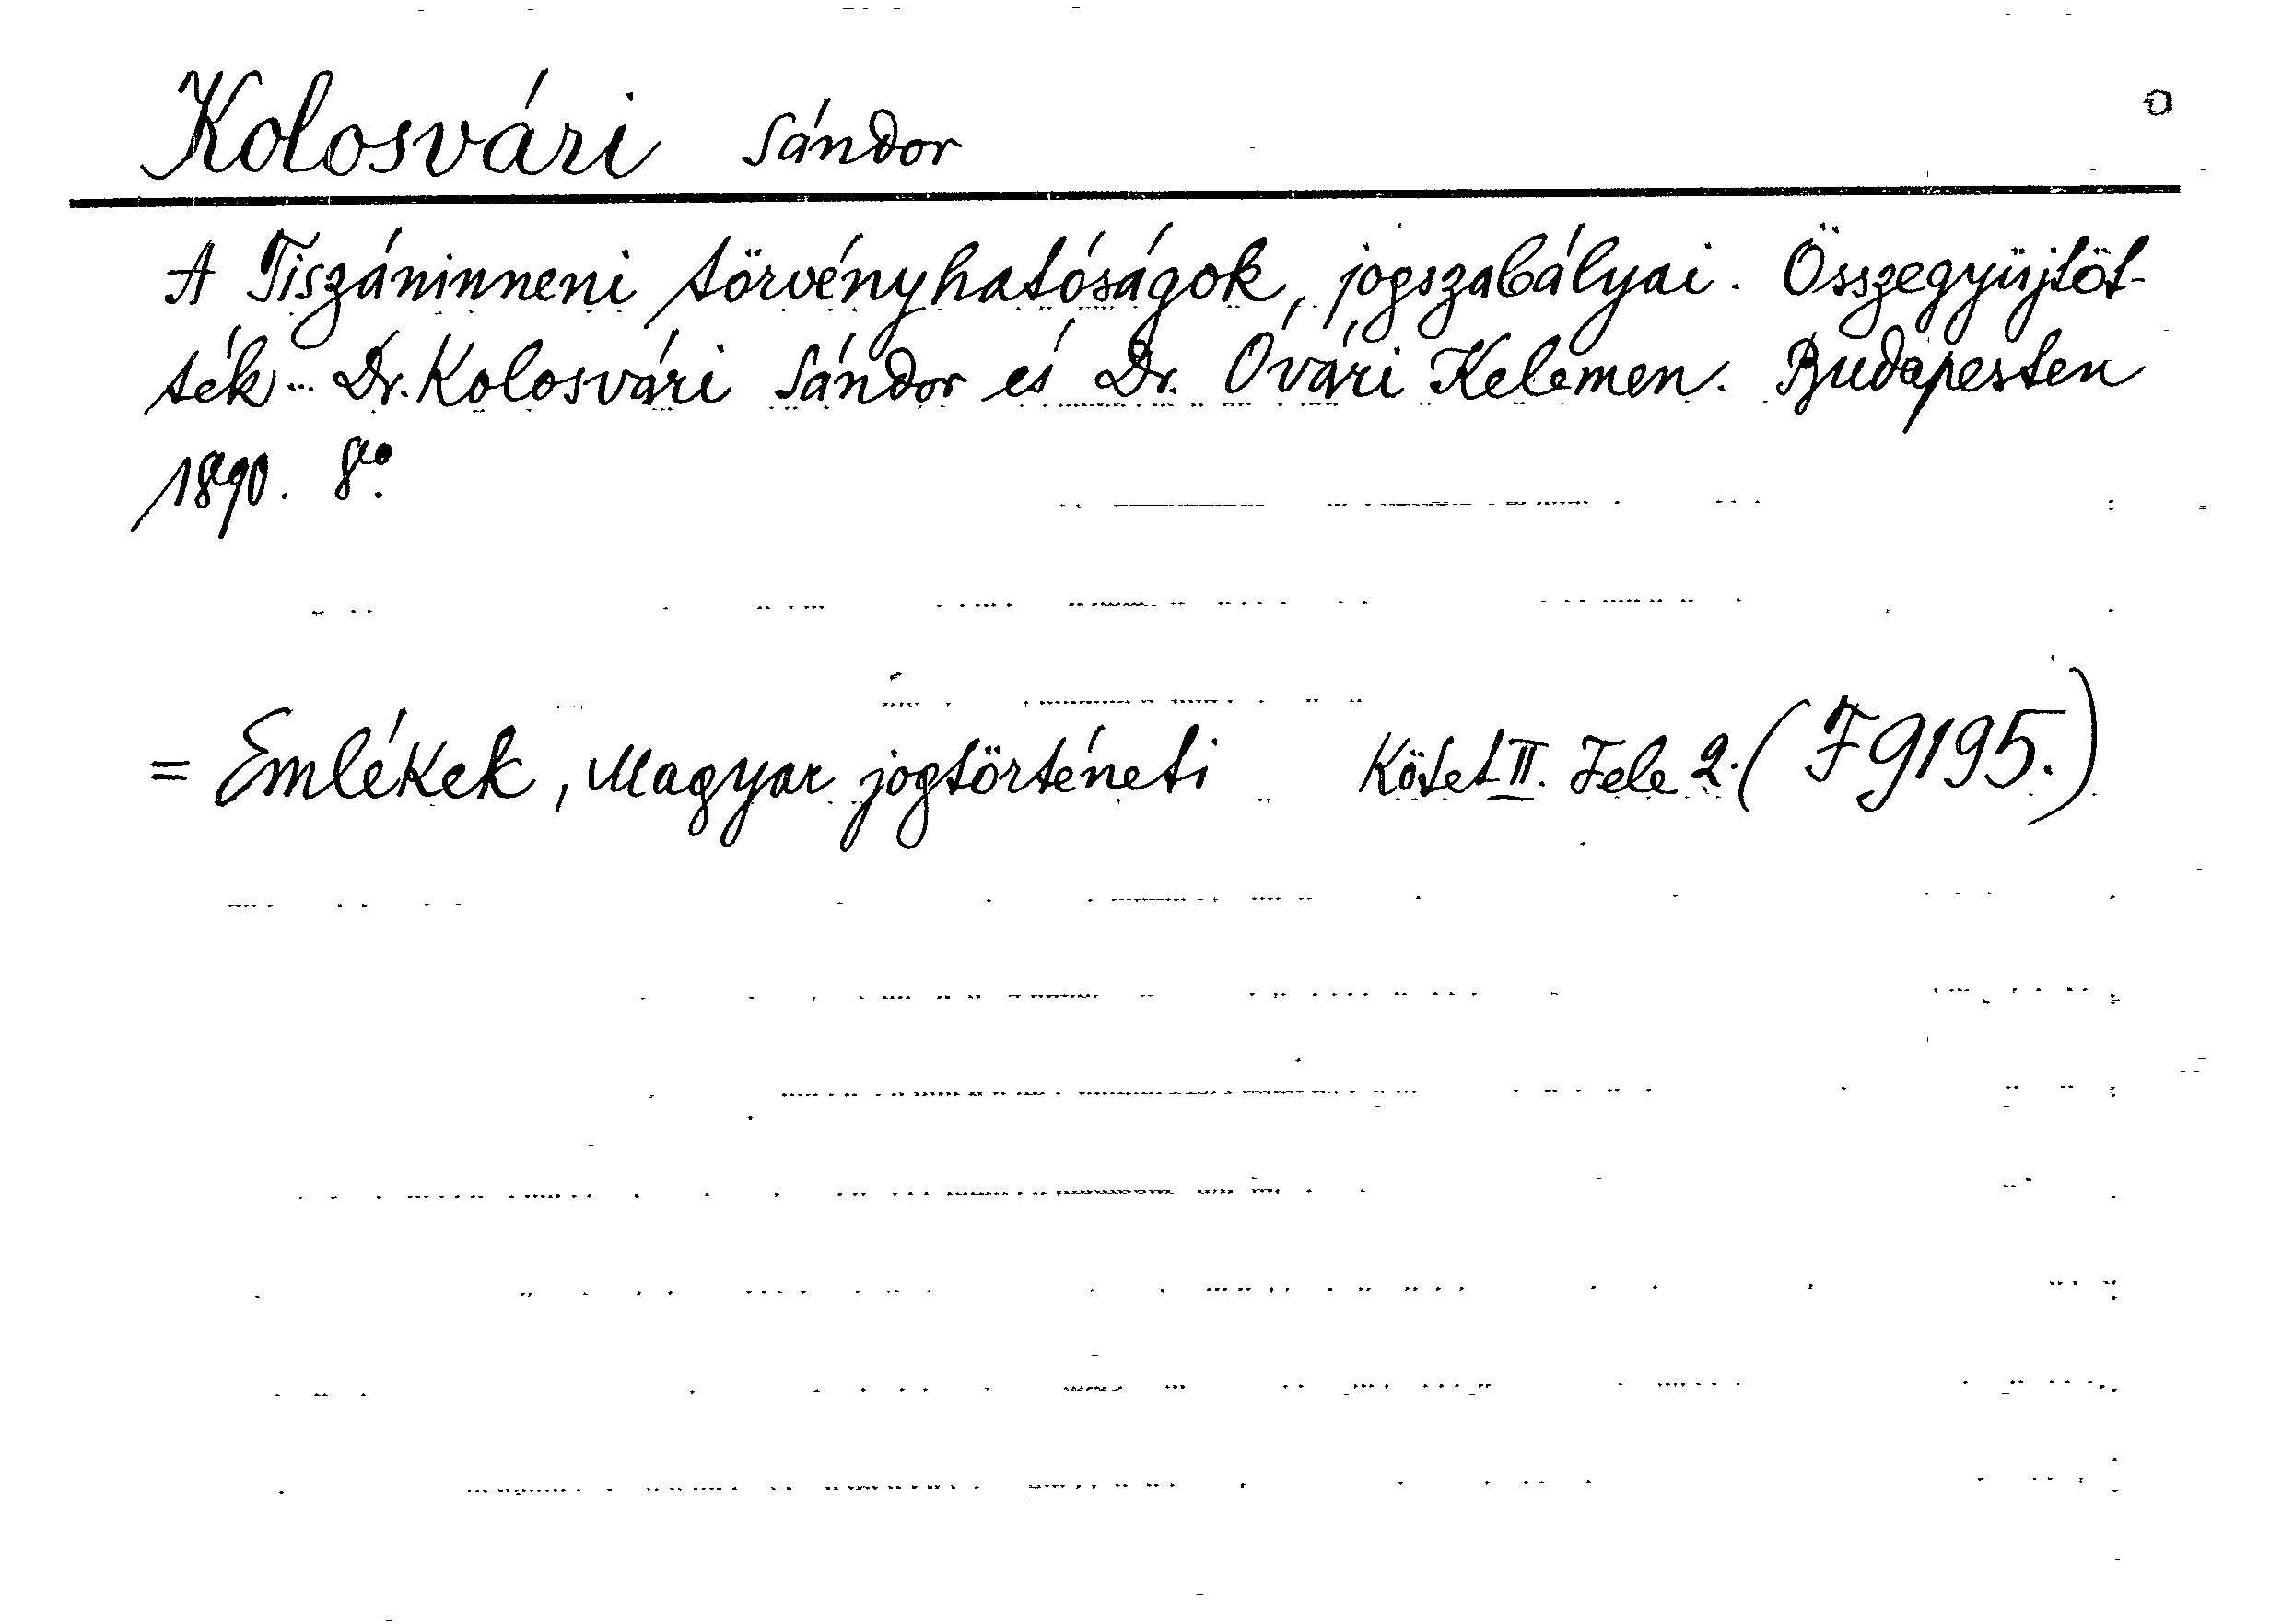 Kolosvári Sándor
A Tiszáninneni törvényhatóságok, jogszabályai. Összegyüjtöt-
ték... Dr. Kolosvári Sándor és Dr. Óvári Kelemen. Budapesten
1890. 8º.
= Emlékek, Magyar jogtörténeti Kötet II. Fele 2. (F 9195.)